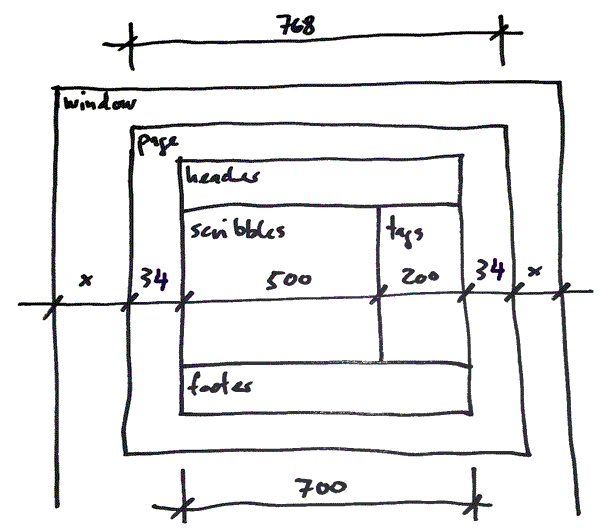 768
window
page
header
scribbles
tags
x
34
500
200
34
x
footer
700